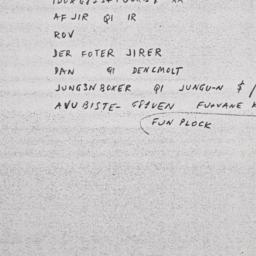 AF JIR QI IR
ROV
DER FOTER JIRER
DAN QI DENCMOLT
JUNG3N BOXER QI JUNGU-N $
AVU BISTE- FUOVANE
FUN PLOCK